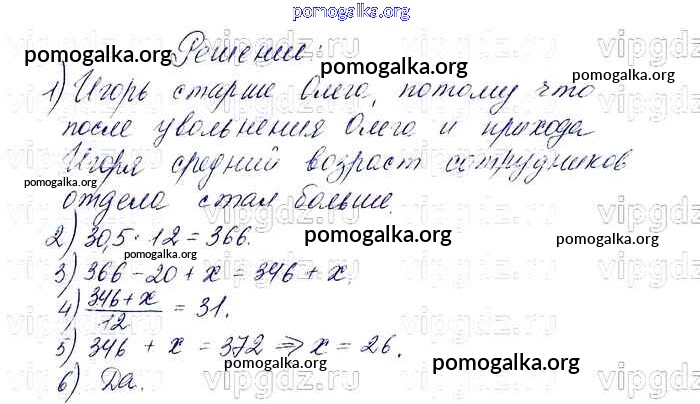 pomogalka.org
Решение:
1) Игорь старше Олега, потому что
после увольнения Олега и прихода
Игоря средний возраст сотрудников
отдела стал больше.
2) 30,5 · 12 = 366.
3) 366 − 20 + x = 346 + x.
4) (346 + x)/12 = 31.
5) 346 + x = 372 ⇒ x = 26.
6) Да.
pomogalka.org
pomogalka.org
pomogalka.org
pomogalka.org
pomogalka.org
pomogalka.org
pomogalka.org
pomogalka.org
pomogalka.org
vipgdz.ru
vipgdz.ru
vipgdz.ru